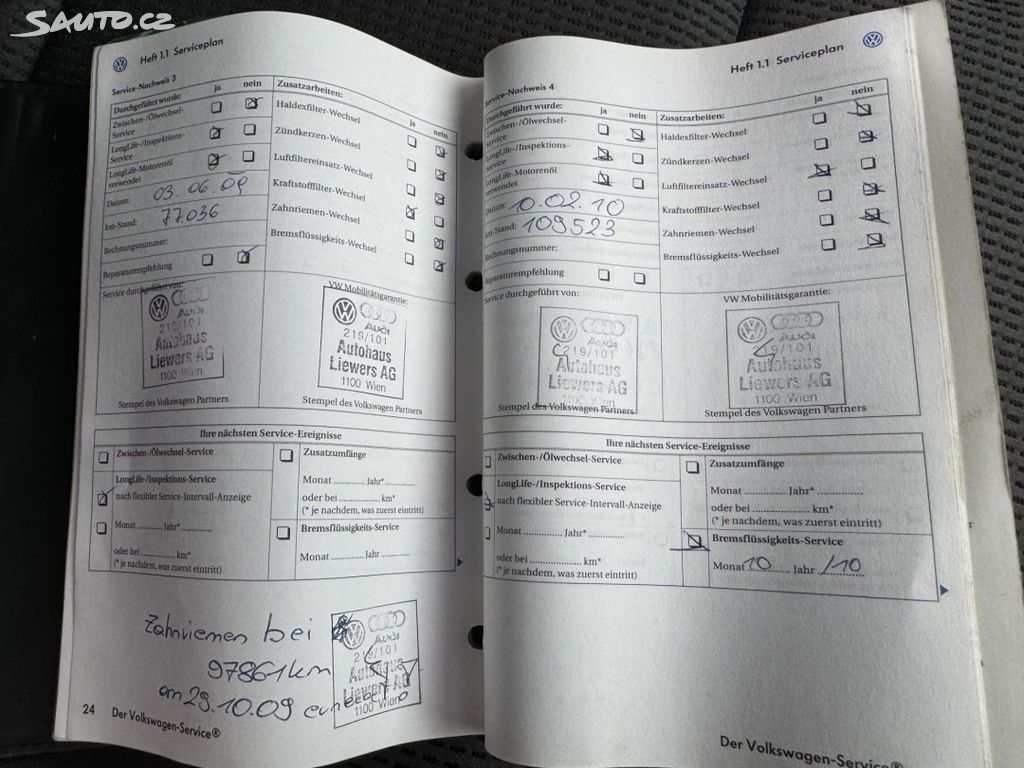 SAUTO.CZ
Heft 1.1 Serviceplan
Service-Nachweis 3
Durchgeführt wurde: ja nein
Zwischen-/Ölwechsel-
Service
LongLife-/Inspektions-
Service
LongLife-Motorenöl
verwendet
Datum: 03.06.09
km-Stand: 77036
Rechnungsnummer:
Reparaturempfehlung
Zusatzarbeiten: ja nein
Haldexfilter-Wechsel
Zündkerzen-Wechsel
Luftfiltereinsatz-Wechsel
Kraftstofffilter-Wechsel
Zahnriemen-Wechsel
Bremsflüssigkeits-Wechsel
Service durchgeführt von:
Audi
219/101
Autohaus
Liewers AG
Stempel des Volkswagen Partners
VW Mobilitätsgarantie:
Audi
219/101
Autohaus
Liewers AG
1100 Wien
Stempel des Volkswagen Partners
Ihre nächsten Service-Ereignisse
Zwischen-/Ölwechsel-Service
LongLife-/Inspektions-Service
nach flexibler Service-Intervall-Anzeige
Monat ............ Jahr* ..............
oder bei .................. km*
(* je nachdem, was zuerst eintritt)
Zusatzumfänge
Monat .............. Jahr* ..............
oder bei .................. km*
(* je nachdem, was zuerst eintritt)
Bremsflüssigkeits-Service
Monat .............. Jahr ..............
Zahnriemen bei
97861km
am 29.10.09
Audi
219/101
Autohaus
Liewers AG
1100 Wien
24 Der Volkswagen-Service®
Heft 1.1 Serviceplan
Service-Nachweis 4
Durchgeführt wurde: ja nein
Zwischen-/Ölwechsel-
Service
LongLife-/Inspektions-
Service
LongLife-Motorenöl
verwendet
Datum: 10.02.10
km-Stand: 109523
Rechnungsnummer:
Reparaturempfehlung
Zusatzarbeiten: ja nein
Haldexfilter-Wechsel
Zündkerzen-Wechsel
Luftfiltereinsatz-Wechsel
Kraftstofffilter-Wechsel
Zahnriemen-Wechsel
Bremsflüssigkeits-Wechsel
Service durchgeführt von:
Audi
219/101
Autohaus
Liewers AG
Stempel des Volkswagen Partners
VW Mobilitätsgarantie:
Audi
219/101
Autohaus
Liewers AG
1100 Wien
Stempel des Volkswagen Partners
Ihre nächsten Service-Ereignisse
Zwischen-/Ölwechsel-Service
LongLife-/Inspektions-Service
nach flexibler Service-Intervall-Anzeige
Monat .............. Jahr* ..............
oder bei .................. km*
(* je nachdem, was zuerst eintritt)
Zusatzumfänge
Monat .............. Jahr* ..............
oder bei .................. km*
(* je nachdem, was zuerst eintritt)
Bremsflüssigkeits-Service
Monat 10 Jahr /10
Der Volkswagen-Service®